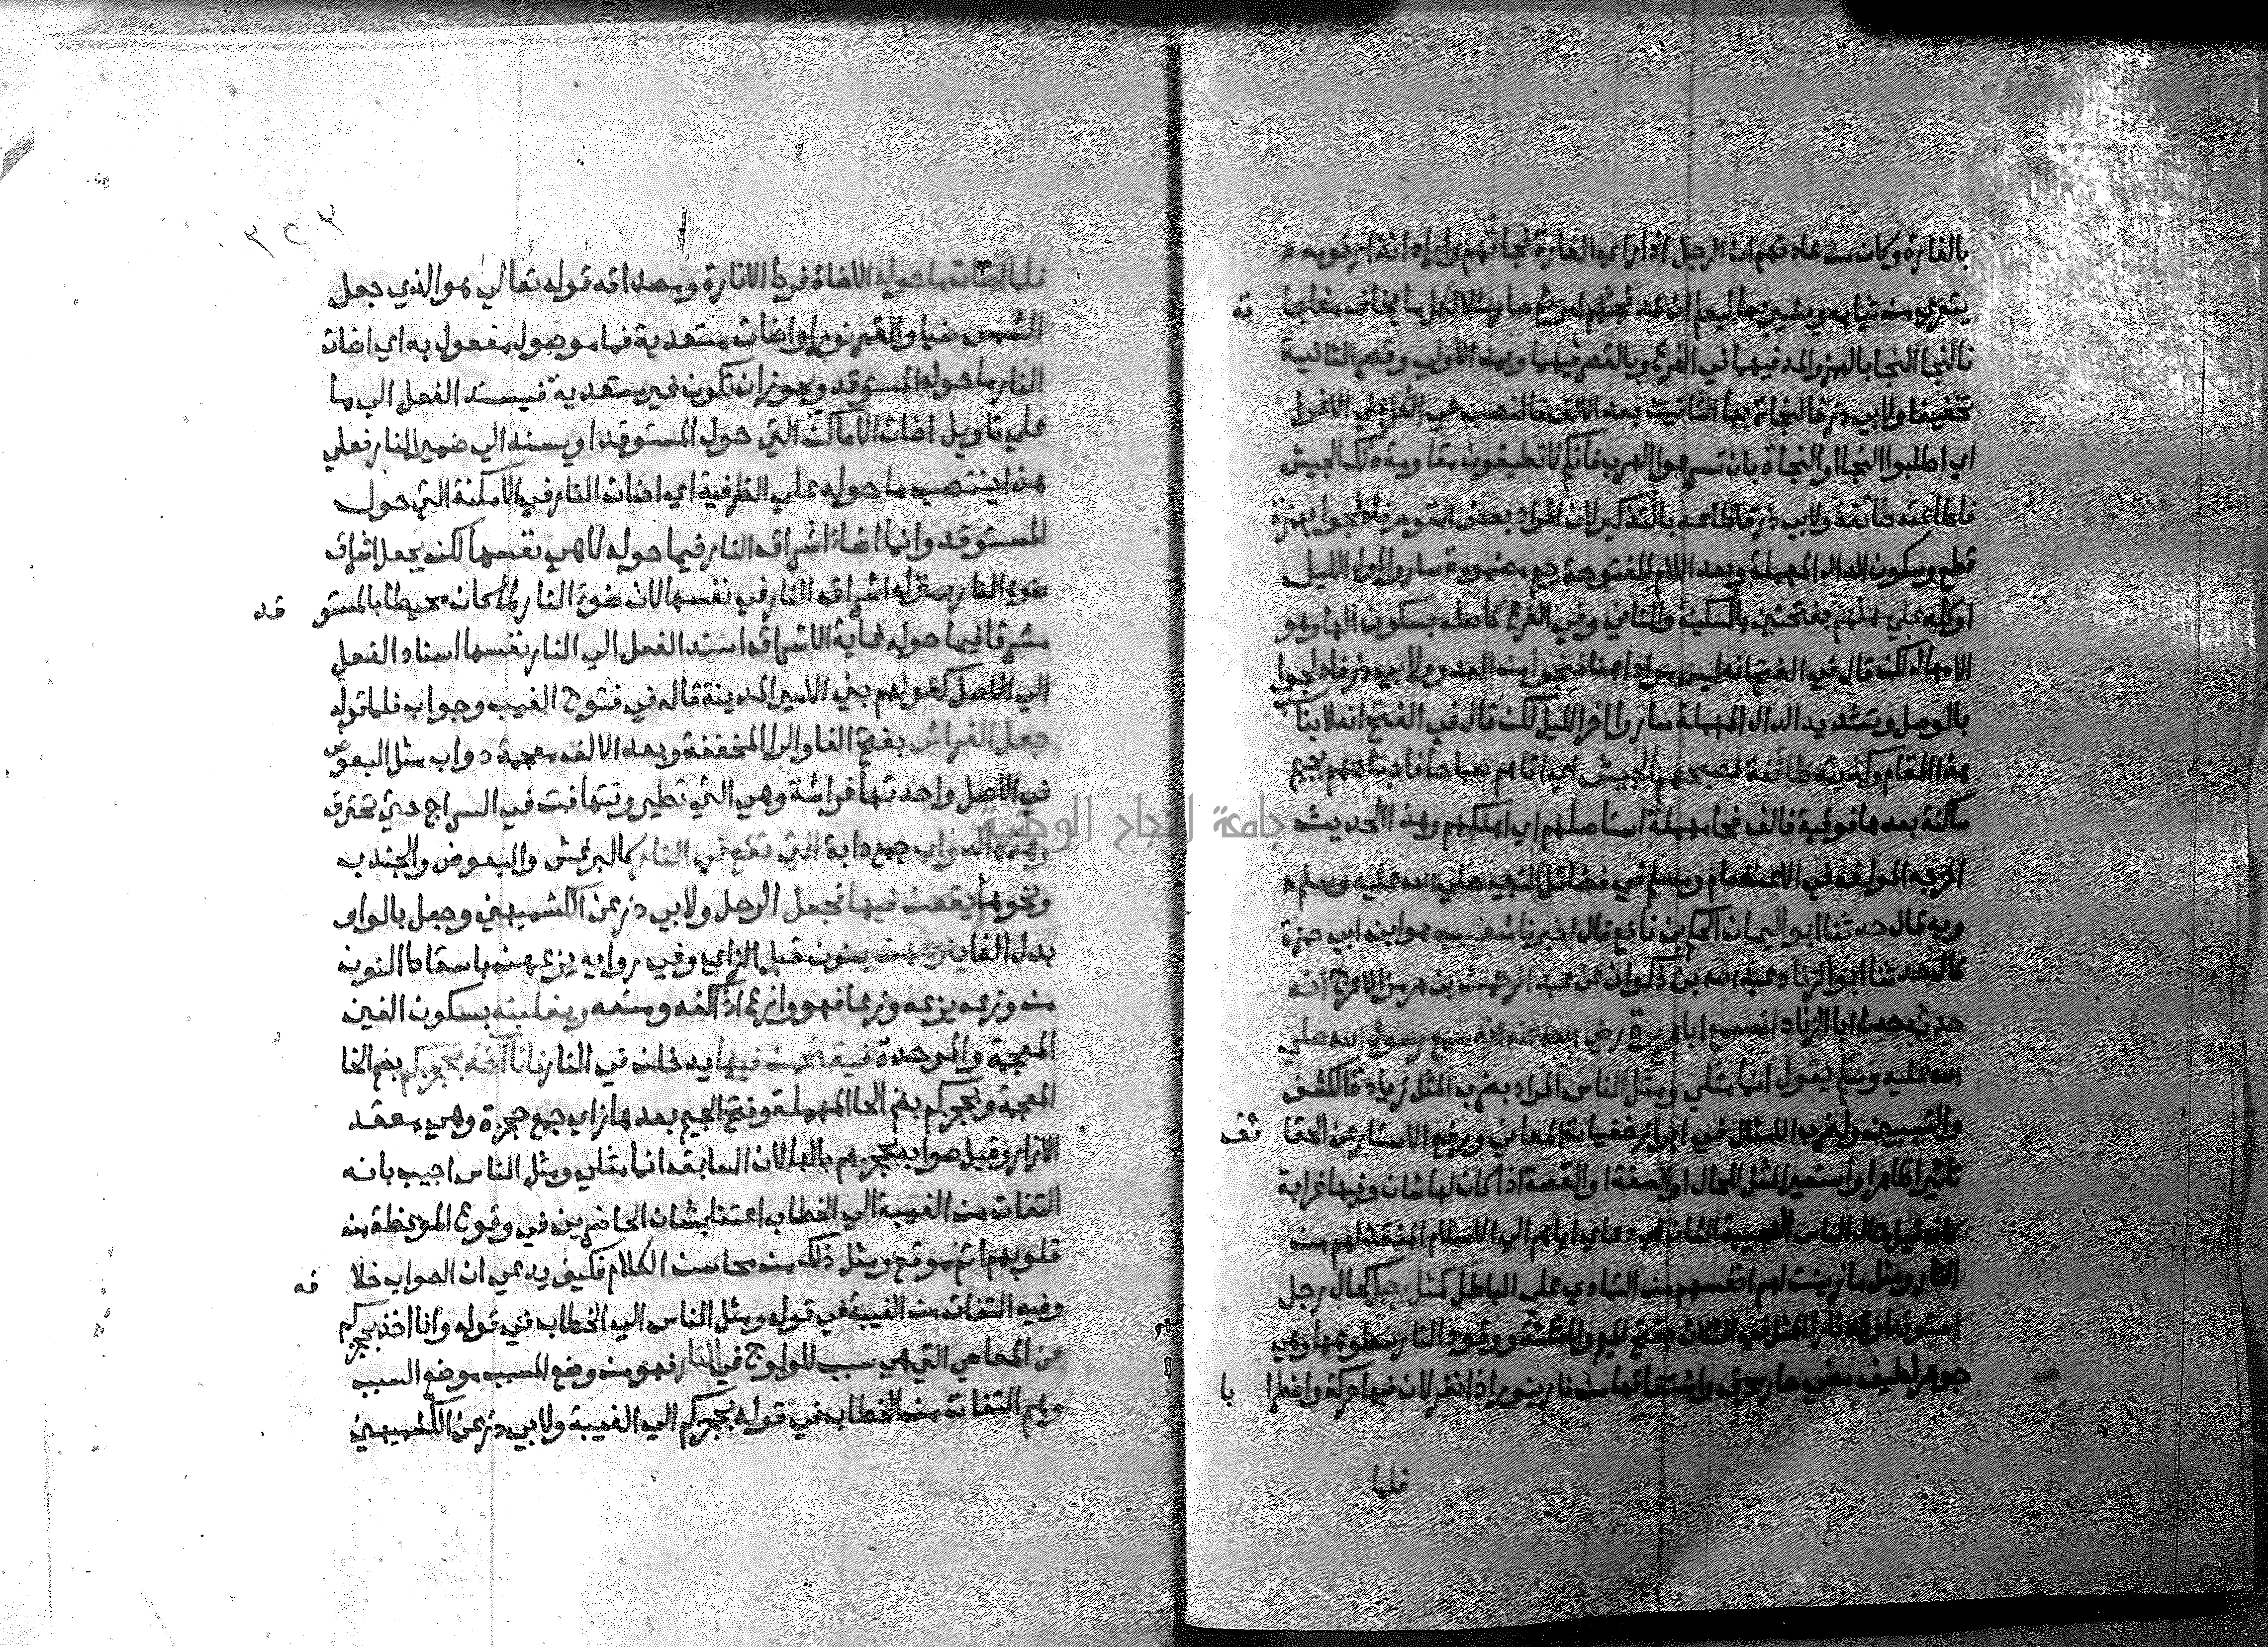 بالغارة وكان من عادتهم ان الرجل اذا راي الغارة فجاتهم واراد انذار قومه
يتعري من ثيابه ويشير بها ليعلم ان قد فجئهم امر ثم صار مثلا لكل ما يخاف مفاجا ته
فالنجا النجا بالهمز والمد فيهما في الفرع وبالقصر فيهما وبمد الاولي وقصر الثانية
تخفيفا ولابي ذر فالنجاة بها التانيث بعد الالف فالنصب في الكل علي الاغرا
اي اطلبوا النجا او النجاة بان تسرعوا الهرب فانكم لا تطيقون مقاومة ذلك الجيش
فاطاعته طائفة ولابي ذر فاطاعه بالتذكير لان المراد بعض القوم فادلجوا بهمزة
قطع وسكون الدال المهملة وبعد اللام المفتوحة جيم مضمومة ساروا اول الليل
او كله علي مهلهم بفتحتين بالسكينة والتاني وفي الفرع كاصله بسكون الها وهو
الامهال لكن قال في الفتح انه ليس مرادا هنا فنجوا من العدو ولابي ذر فادلجوا
بالوصل وتشديد الدال المهملة ساروا اخر الليل لكن قال في الفتح انه لا يناسب
هذا المقام وكذبته طائفة فصبحهم الجيش اي اتاهم صباحا فاجتاحهم بجيم
ساكنة بعدها فوقية فالف فحا مهملة استاصلهم اي اهلكهم وهذا الحديث
اخرجه المولف في الاعتصام ومسلم في فضائل النبي صلي الله عليه وسلم
وبه قال حدثنا ابو اليمان الحكم بن نافع قال اخبرنا شعيب هو ابن ابي حمزة
قال حدثنا ابو الزناد عبد الله بن ذكوان عن عبد الرحمن بن هرمز الاعرج انه
حدثه حدث ابا الزناد انه سمع ابا هريرة رضي الله عنه انه سمع رسول الله صلي
الله عليه وسلم يقول انما مثلي ومثل الناس المراد بضرب المثل زيادة الكشف
والتبيين ولضرب الامثال في ابراز خفيات المعاني ورفع الاستار عن الحقا ئف
تاثيرا ظاهرا واستعير المثل للحال او الصفة او القصة اذا كان لها شان وفيها غرابة
كانه قيل حال الناس العجيبة الشان في دعاي اياهم الي الاسلام المنقذ لهم من
النار ومثل ما زينت لهم انفسهم من التمادي علي الباطل كمثل رجل كحال رجل
استوقد اوقد نارا المثل في الثاني بفتح الميم والمثلثة ووقود النار سطوعها وهي
جوهر لطيف مضي حار محرق واشتقاقها من نار ينور اذا نفر لان فيها حركة واضطرا با
فلما
٣٢٣
فلما اضات ما حوله الاضاة فرط الانارة ومصداقه قوله تعالي هو الذي جعل
الشمس ضيا والقمر نورا واضات متعدية فما موصول مفعول به اي اضات
النار ما حول المستوقد ويجوز ان تكون غير متعدية فيسند الفعل الي ما
علي تاويل اضات الاماكن التي حول المستوقد او يسند الي ضمير النار فعلي
هذا ينتصب ما حوله علي الظرفية اي اضات النار في الامكنة التي حول
المستوقد وانما اضاة اشراق النار فيما حوله لا هي نفسها لكن يجعل اشراق
ضوء النار بمنزلة اشراق النار في نفسها لان ضوء النار لما كان محيطا بالمستو قد
مشرقا فيما حوله غاية الاشراق اسند الفعل الي النار نفسها اسناد الفعل
الي الاصل كقولهم بني الامير المدينة قاله في فتوح الغيب وجواب فلما قوله
جعل الفراش بفتح الفا والرا المخففة وبعد الالف معجمة دواب مثل البعوض
في الاصل واحدتها فراشة وهي التي تطير وتتهافت في السراج حتي تحترق
وهذه الدواب جمع دابة التي تقع في النار كالبرغش والبعوض والجندب
ونحوها يقعن فيها فجعل الرجل ولابي ذر عن الكشميهني وجعل بالواو
بدل الفا ينزعهن بنون قبل الزاي وفي رواية يزعهن باسقاط النون
من وزعه يزعه وزعا فهو وازع اذا كفه ومنعه ويغلبنه بسكون الغين
المعجمة والموحدة فيقتحمن فيها يدخلن في النار فانا آخذ بحجزكم بضم الخا
المعجمة وبحجزكم بضم الحا المهملة وفتح الجيم بعدها زاي جمع حجزة وهي معقد
الازار وقيل صوابه بحجزهم بالها لان السابق انما مثلي ومثل الناس اجيب بانه
التفات من الغيبة الي الخطاب اعتنا بشان الحاضرين في وقوع الموعظة من
قلوبهم اتم موقع ومثل ذلك من محاسن الكلام فكيف يدعي ان الصواب خلا فه
وفيه التفات من الغيبة في قوله ومثل الناس الي الخطاب في قوله وانا اخذ بحجزكم
عن المعاصي التي هي سبب للولوج في النار فهو من وضع المسبب موضع السبب
وهم التفات من الخطاب في قوله بحجزكم الي الغيبة ولابي ذر عن الكشميهني
جامعة النجاح الوطنية